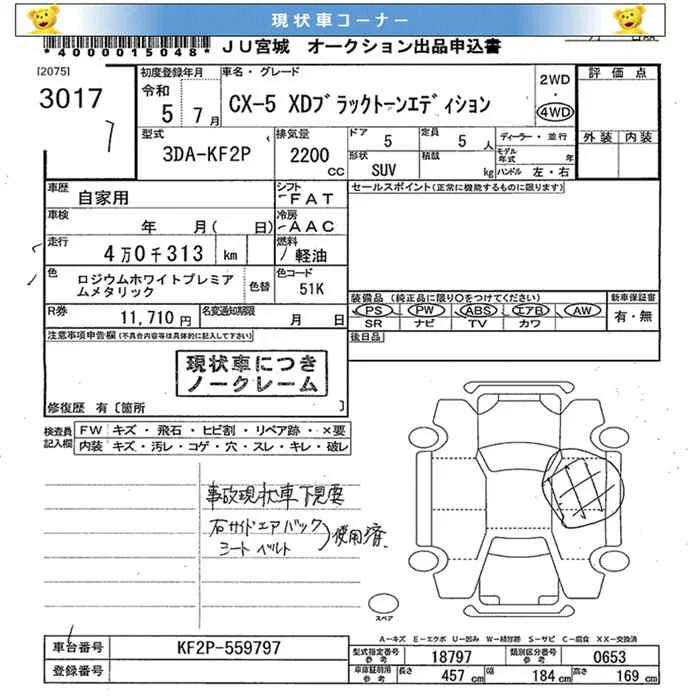 現状車コーナー
*4000015048*
JU宮城 オークション出品申込書
[2075]
3017
初度登録年月
令和
5 7月
車名・グレード
CX-5 XDブラックトーンエディション
2WD
・
4WD
評価点
外装 内装
型式
3DA-KF2P
排気量
2200 CC
ドア
5
定員
5 人
形状
SUV
積載
kg
ディーラー・並行
モデル年式 年
ハンドル 左・右
車歴
自家用
シフト
FAT
セールスポイント(正常に機能するものに限ります)
車検
年 月( 日)
冷房
AAC
走行
4万0千313 km
燃料
軽油
色
ロジウムホワイトプレミアムメタリック
色替
色コード
51K
R券
11,710円
名変通知期限
月 日
装備品(純正品に限り○をつけてください)
PS PW ABS エアB AW
SR ナビ TV カワ
新車保証書
有・無
後日品
注意事項申告欄(不具合内容等は具体的に記入して下さい)
現状車につき
ノークレーム
修復歴 有〔箇所 〕
検査員記入欄
FW キズ・飛石・ヒビ割・リペア跡・×要
内装 キズ・汚レ・コゲ・穴・スレ・キレ・破レ
事故現状車下見要
右サイドエアバック
シートベルト
)使用済
スペア
A-キズ E-エクボ U-凹み W-補修跡 S-サビ C-腐食 XX-交換済
車台番号
KF2P-559797
登録番号
型式指定番号
参考
18797
類別区分番号
参考
0653
車庫証明用
参考
長さ
457 cm
幅
184 cm
高さ
169 cm